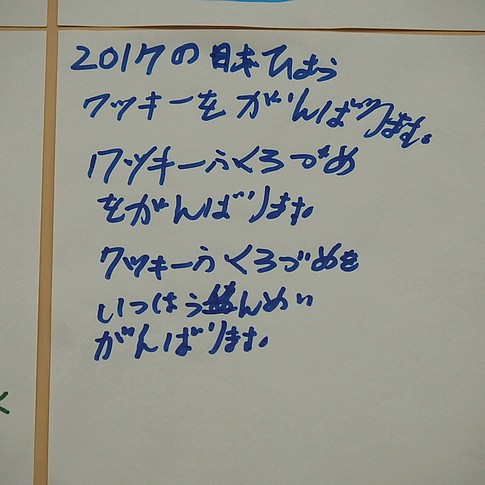 2017の目標ひょう
クッキーを がんばります。
クッキーふくろづめ
をがんばります。
クッキーふくろづめを
いっしょうけんめい
がんばります。